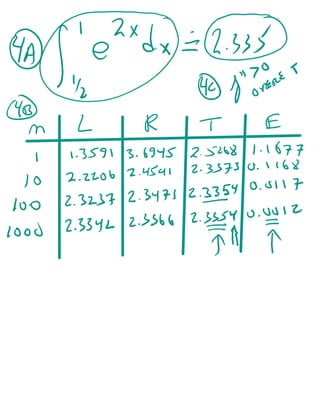 4A ∫ 1/2 1 e^2x dx ≐ 2.335
4C f" > 0
OVEREST
4B
n L R T E
1 1.3591 3.6945 2.5268 1.1677
10 2.2206 2.4541 2.3373 0.1168
100 2.3237 2.3471 2.3354 0.0117
1000 2.3342 2.3366 2.3354 0.0012